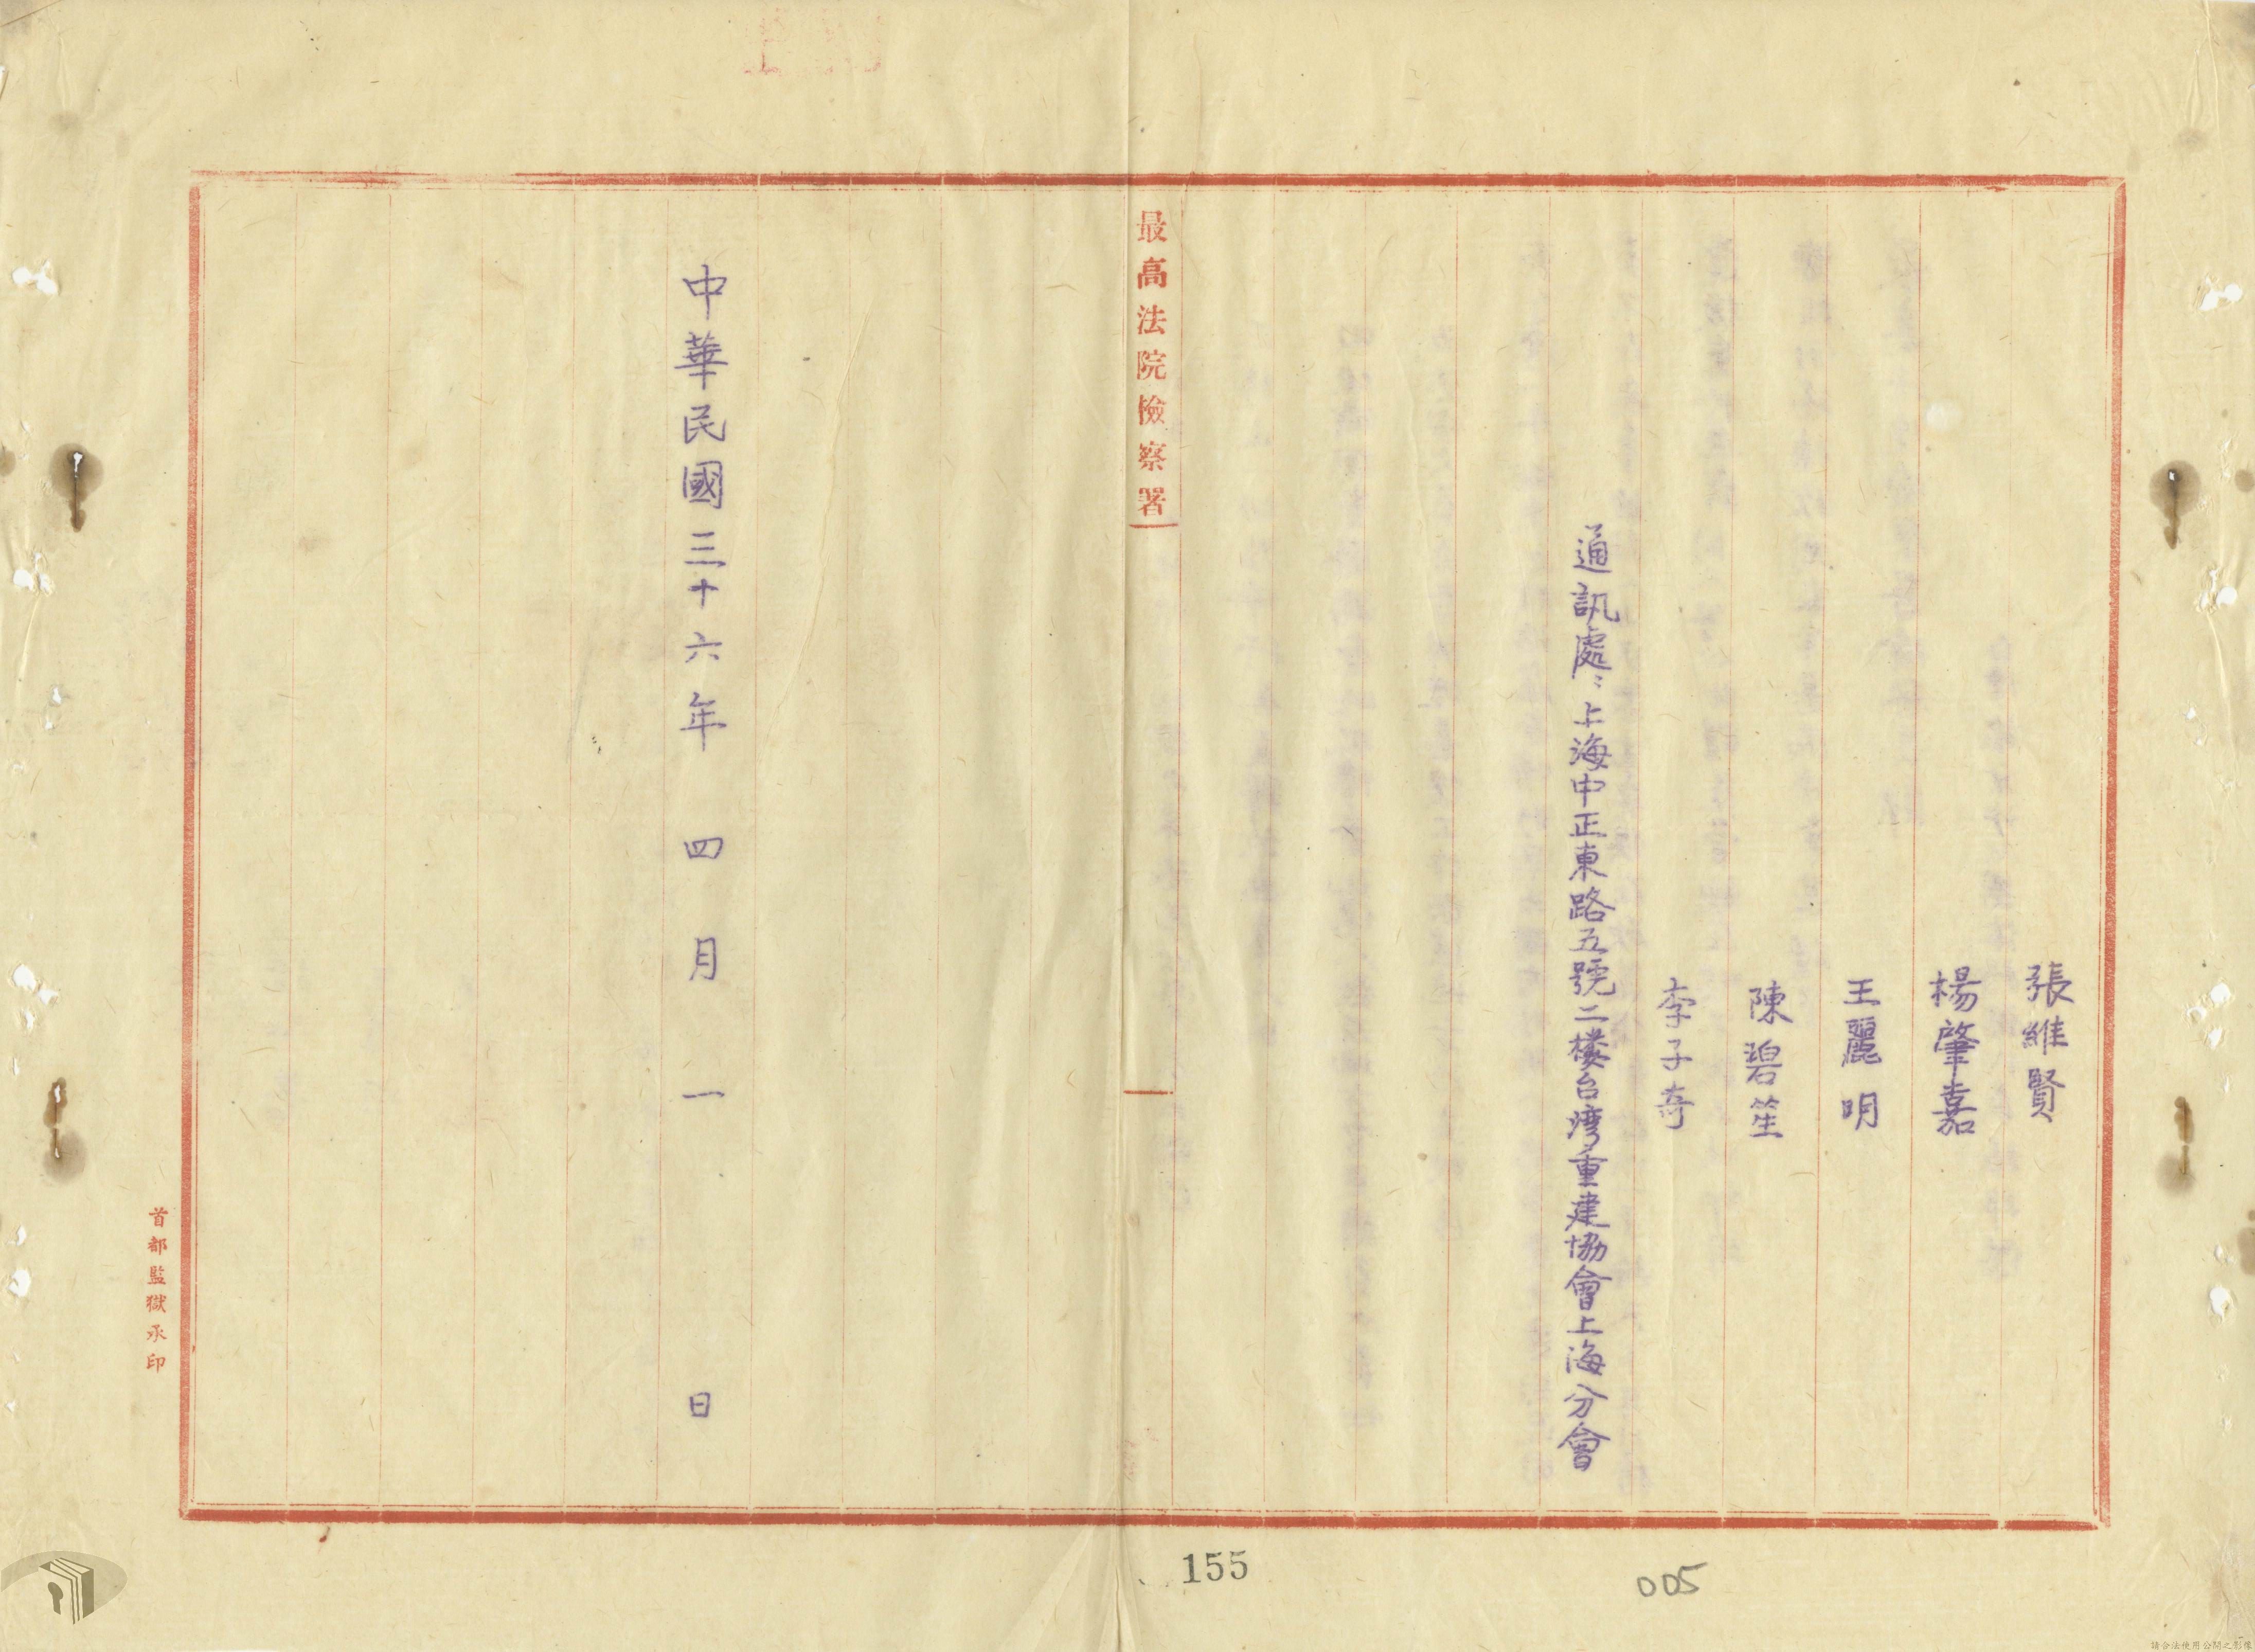 張維賢
楊肇嘉
王麗明
陳碧笙
李子奇
通訊處：上海中正東路五號二樓台灣重建協會上海分會
最高法院檢察署
中華民國三十六年 四 月 一 日
首都監獄承印
155
005
請合法使用公開之影像